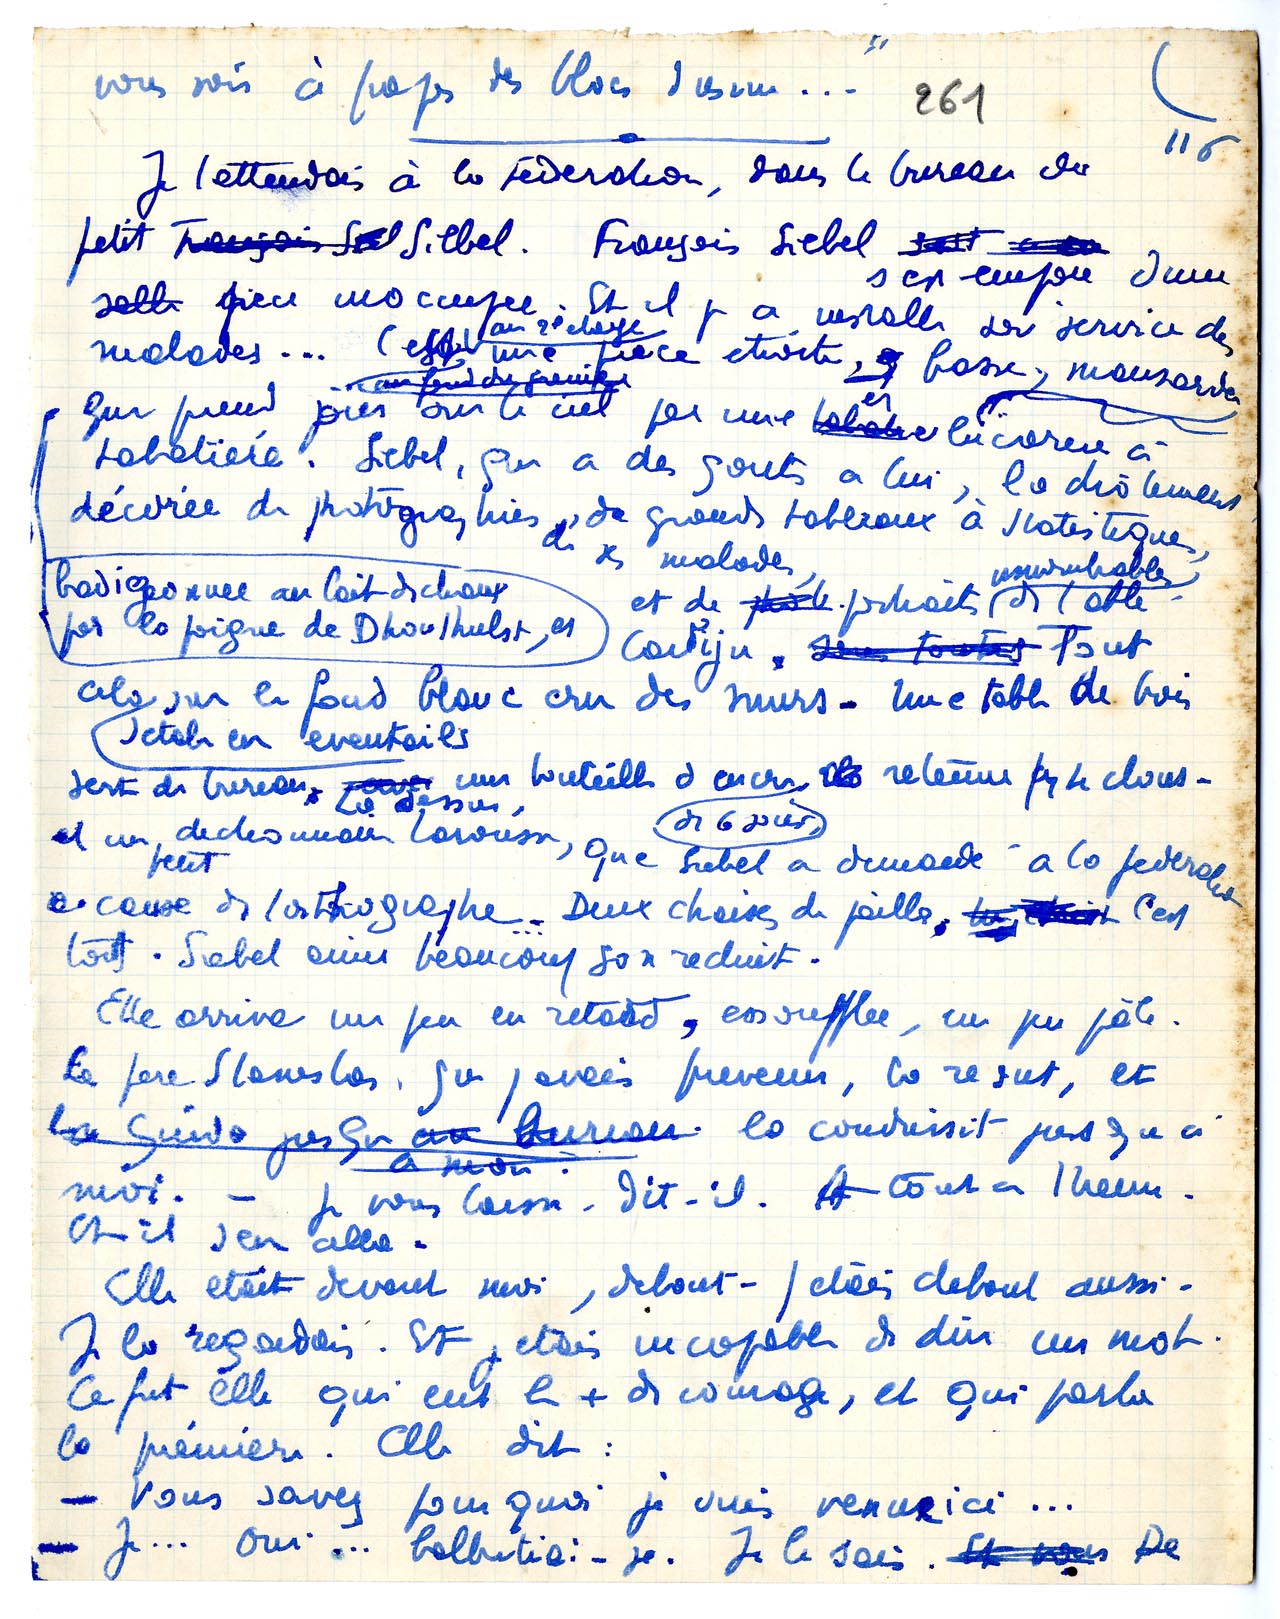 vous sois à des blocs
261
116
Je l'attendais à la Fédération, dans le bureau du
petit François Siebel. François Siebel
s'est emparé d'une
salle pièce inoccupée. Et il y a installé son service des
malades... C'est au rez chaussée une pièce étroite, basse, mansardée
au fond du grenier
qui prend jour sur le ciel par une lucarne à
tabatière. Siebel, qui a des gouts à lui, l'a drôlement
décorée de photographies, de grands tableaux à statistiques,
de ses malades,
badigeonnée au lait de chaux
par la poigne de Dhoulhulst, et
et de portraits innombrables de l'abbé
Cardijn. Tout
cela sur le fond blanc cru des murs. Une table de bois
étalés en éventails
sert de bureau. Là dessus, une bouteille d'encre, retenue clous
et un petit dictionnaire Larousse, (de 6 sous) que Siebel a demandé à la fédération
à cause de l'orthographe. Deux chaises de paille. C'est
tout. Siebel aime beaucoup son réduit.
Elle arriva un peu en retard, essoufflée, un peu pâle.
Le père Stanislas, que j'avais prévenu, la reçut, et
la guida jusqu'au bureau. la conduisit jusqu'à
à moi.
moi. - Je vous laisse, dit-il. A tout à l'heure.
Et il s'en alla.
Elle était devant moi, debout - j'étais debout aussi.
Je la regardais. Et j'étais incapable de dire un mot.
Ce fut elle qui eut le + de courage, et qui parla
la première. Elle dit :
- Vous savez pourquoi je suis venue ici...
- Je... Oui... balbutiai-je. Je le sais. Et vous De